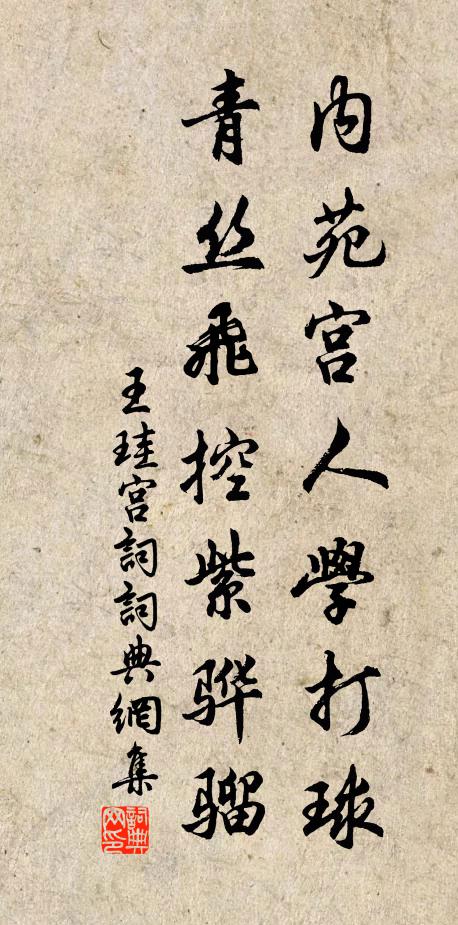 内苑宫人學打球
青丝飛控紫骅騮
王珪宫詞詞典網集
詞典
网印